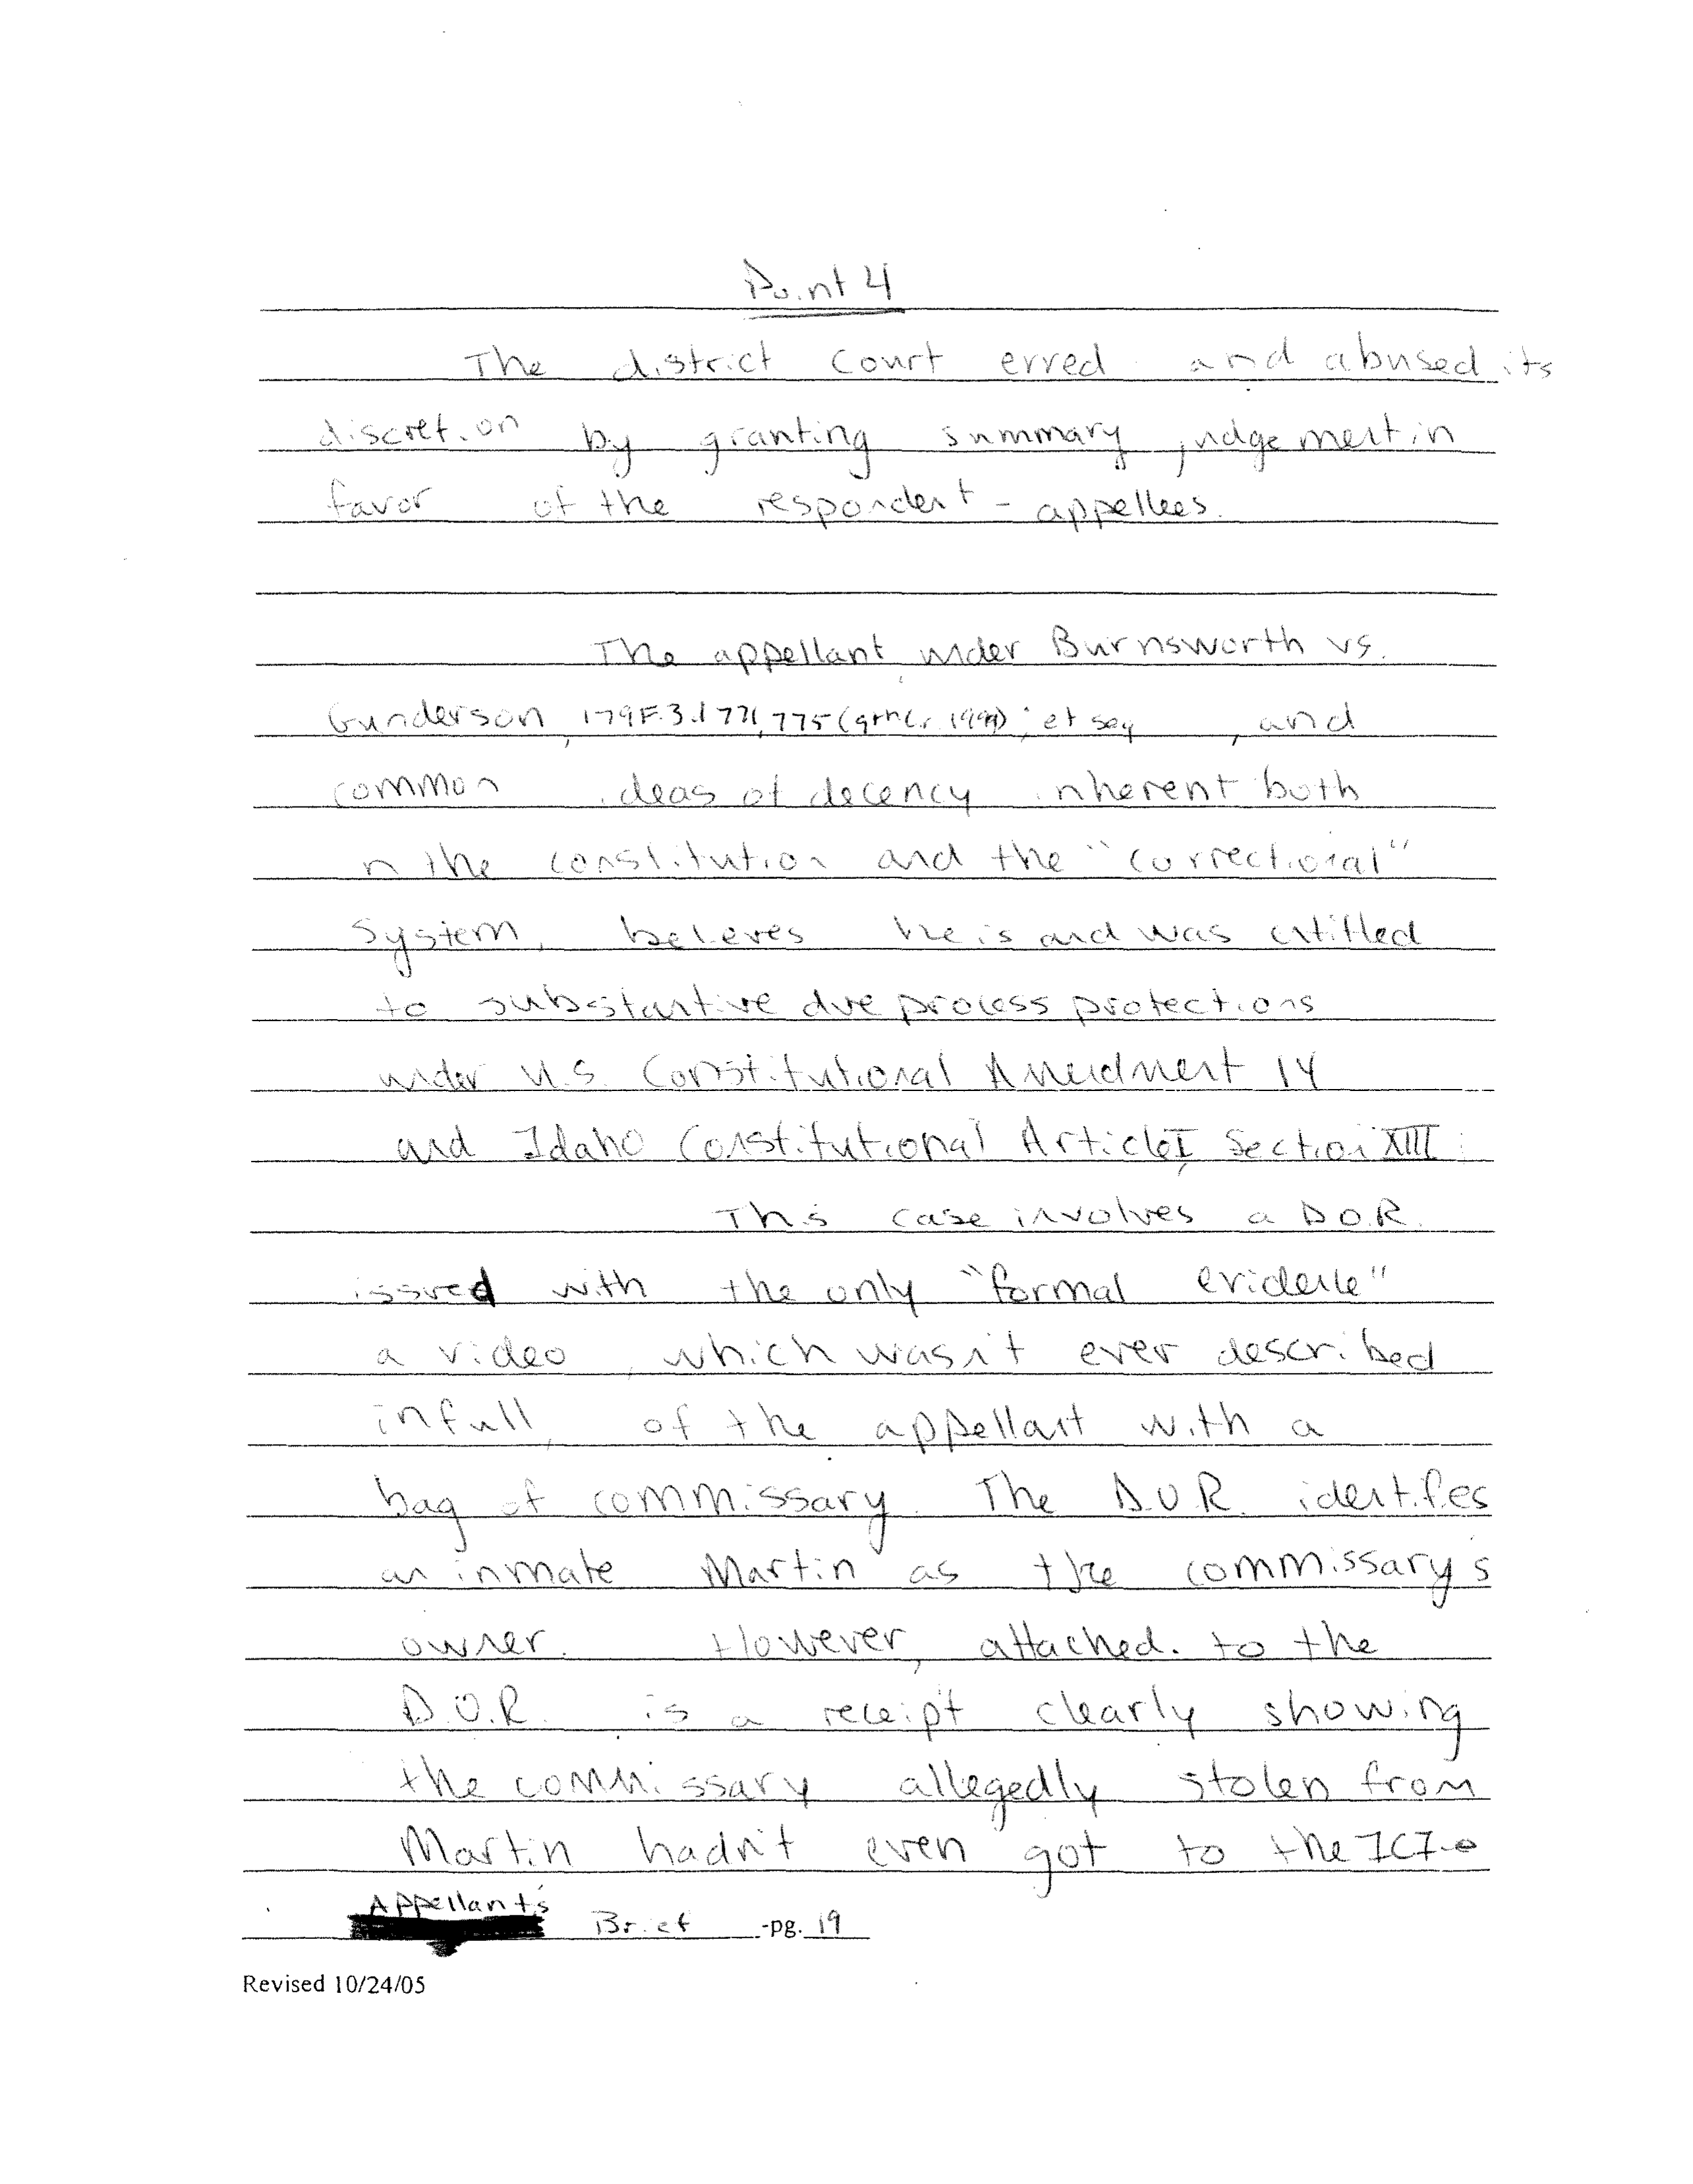 Point 4
The district court erred and abused its
discretion by granting summary judgement in
favor of the respondent - appellees.
The appellant, under Burnsworth vs.
Gunderson, 179 F.3d 771, 775 (9th Cir. 1999); et seq, and
common ideas of decency inherent both
in the constitution and the "correctional"
system, believes he is and was entitled
to substantive due process protections
under U.S. Constitutional Amendment 14
and Idaho Constitutional Article I, Section XIII.
This case involves a D.O.R.
issued with the only "formal evidence"
a video, which wasn't ever described
in full, of the appellant with a
bag of commissary. The D.O.R. identifies
an inmate Martin as the commissary's
owner. However, attached to the
D.O.R. is a receipt clearly showing
the commissary allegedly stolen from
Martin hadn't even got to the ICI-O
Appellant's Brief -pg. 19
Revised 10/24/05